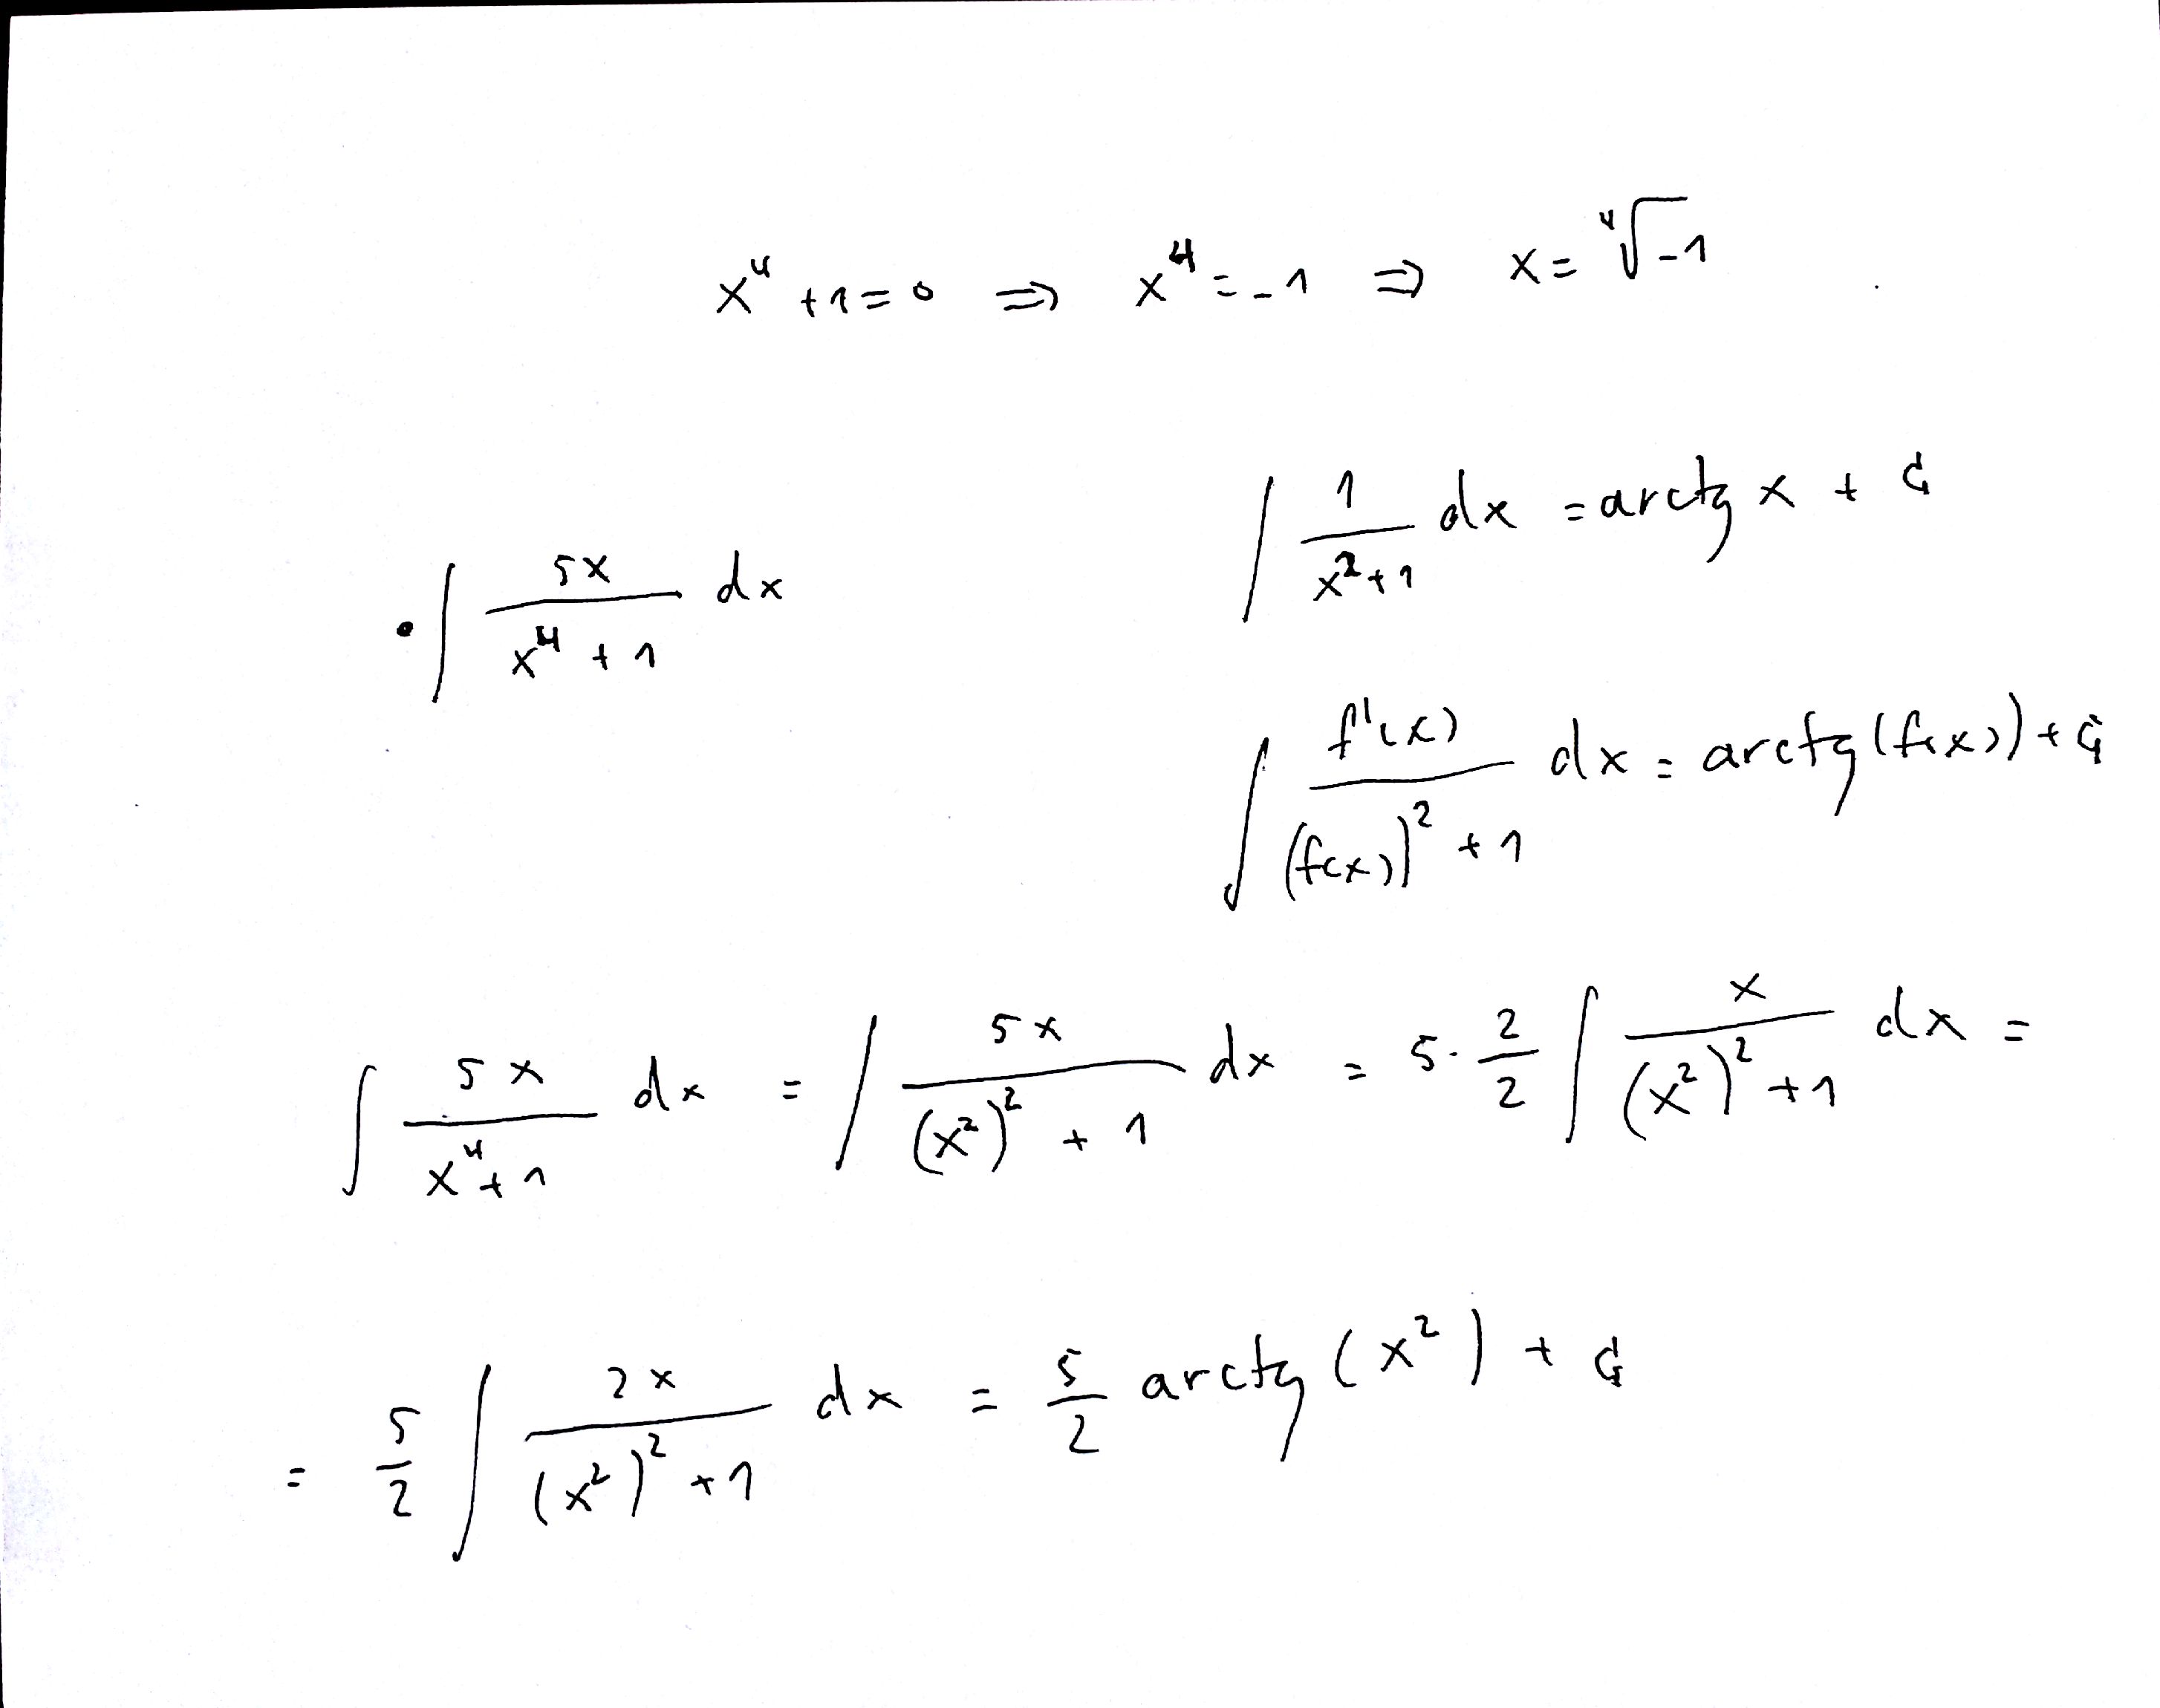 x⁴ + 1 = 0 ⇒ x⁴ = -1 ⇒ x = ⁴√-1
∫ 1/(x²+1) dx = arctg x + C
• ∫ 5x/(x⁴+1) dx
∫ f'(x)/((f(x))²+1) dx = arctg(f(x)) + C
∫ 5x/(x⁴+1) dx = ∫ 5x/((x²)²+1) dx = 5·2/2 ∫ x/((x²)²+1) dx =
= 5/2 ∫ 2x/((x²)²+1) dx = 5/2 arctg(x²) + C